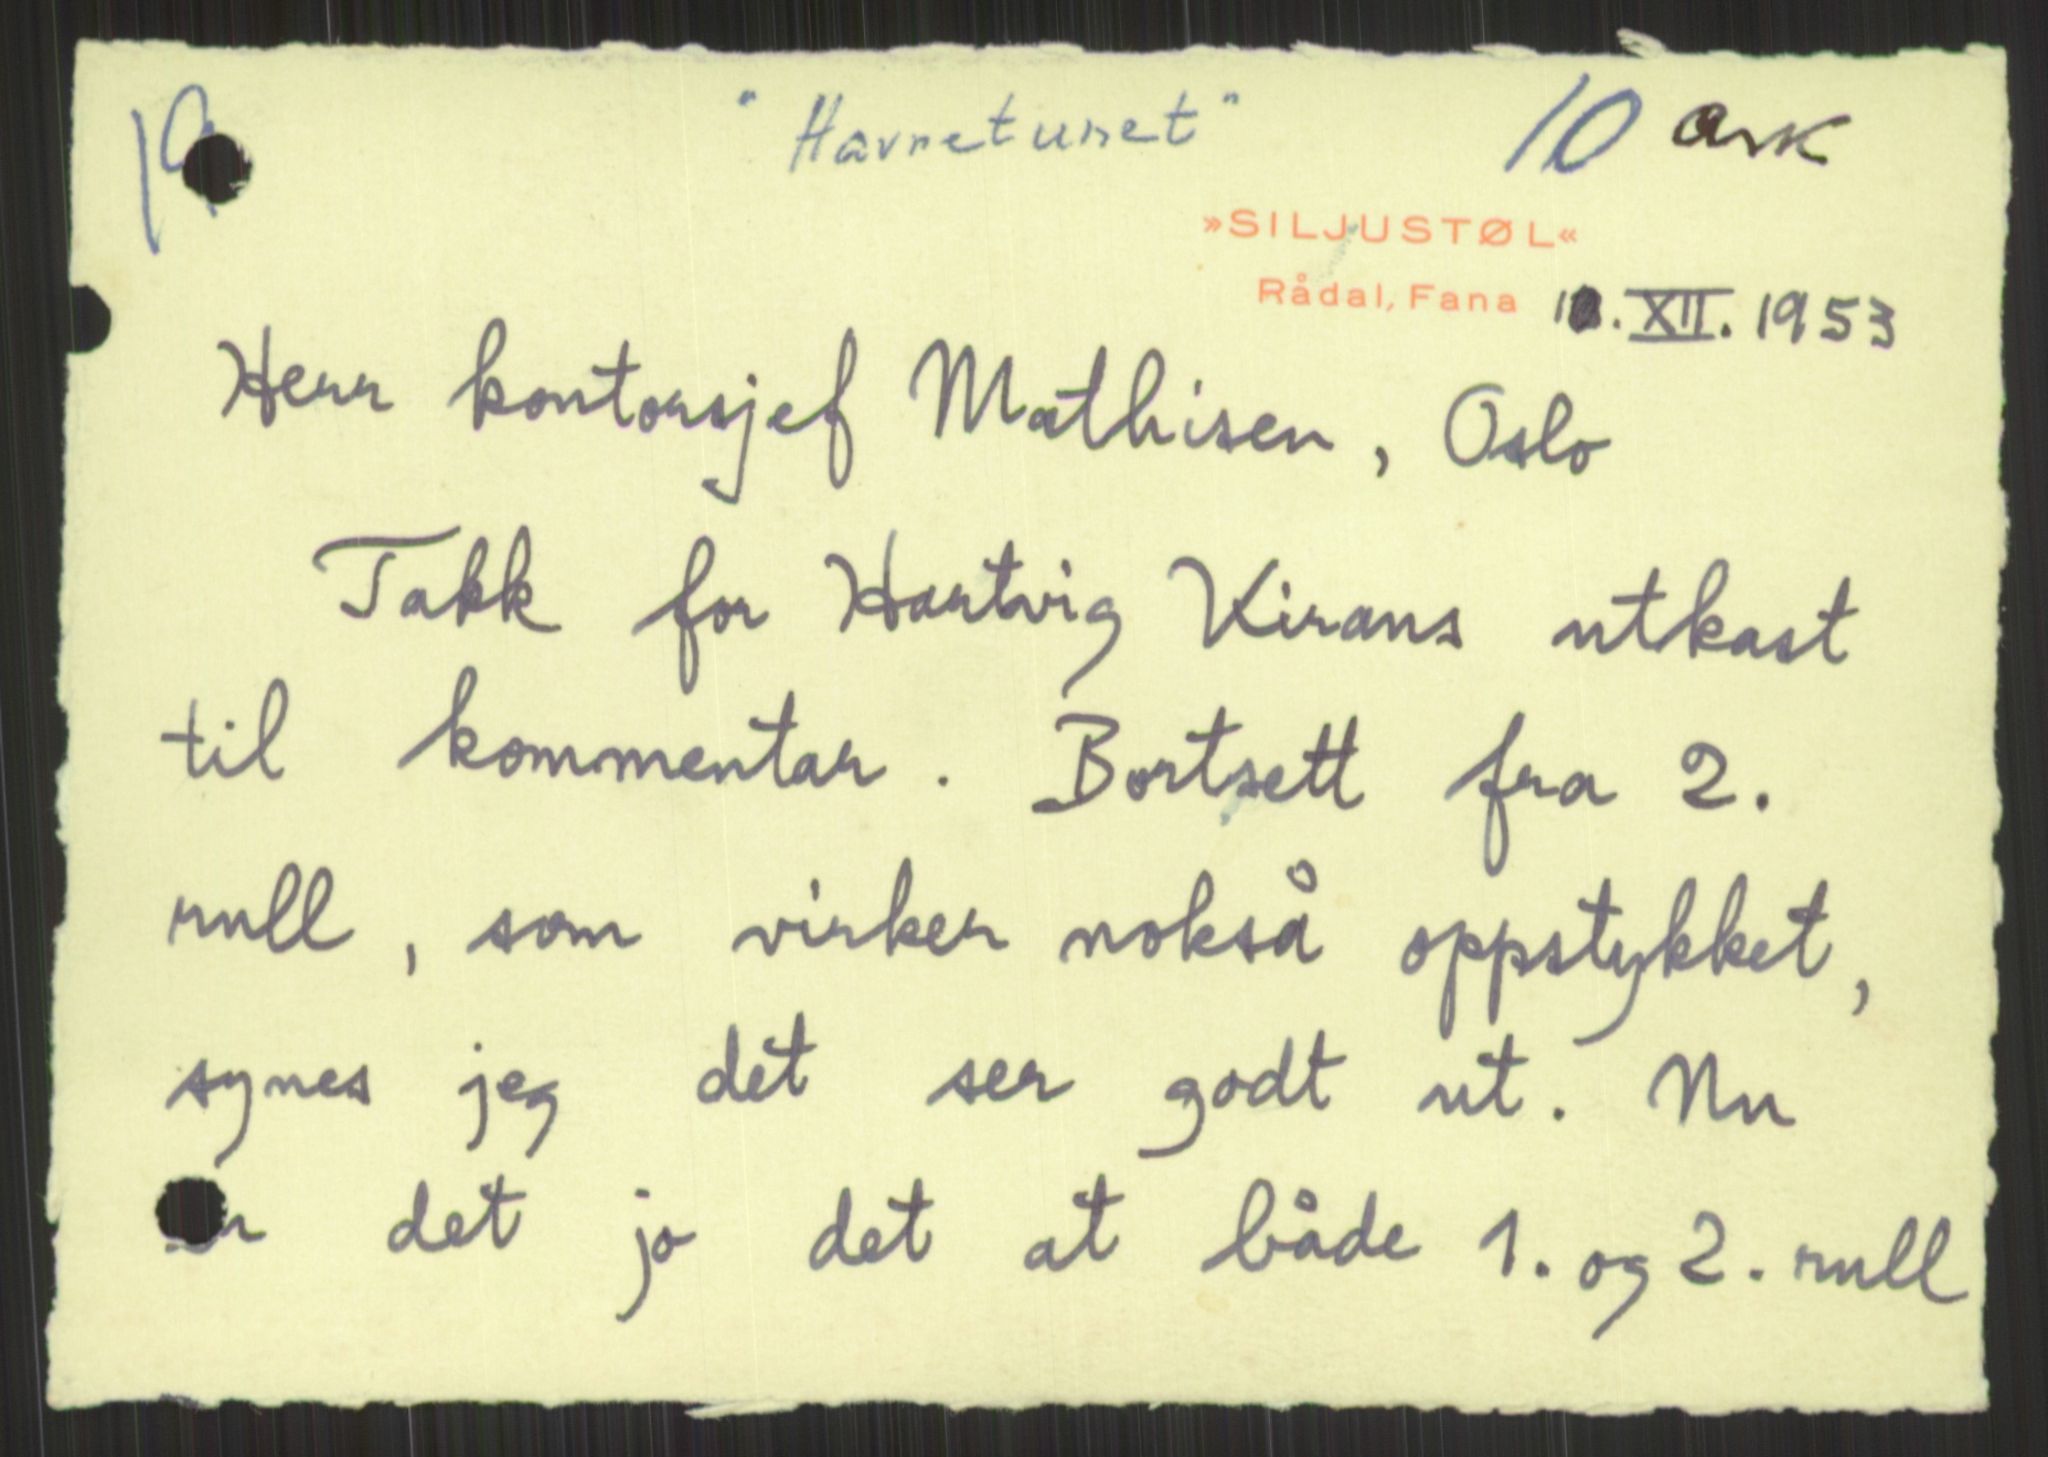 19
"Havnetunet"
10 ark
»SILJUSTØL«
Rådal, Fana . XII. 1953
Herr kontorsjef Mathisen, Oslo
Takk for Hartvig Kirans utkast
til kommentar. Bortsett fra 2.
rull, som virker nokså oppstykket,
synes jeg det ser godt ut. Nu
er det jo det at både 1. og 2. rull